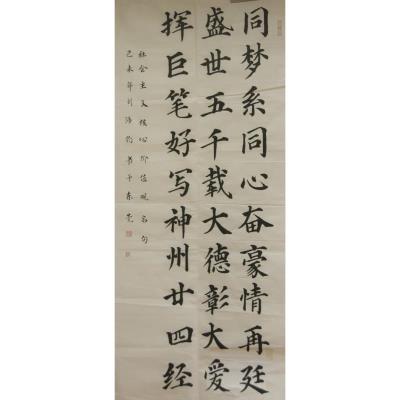 同梦系同心奋豪情再廷
盛世五千载大德彰大爱
挥巨笔好写神州廿四经
社会主义核心价值观名句
己未年刘浩钧书于东莞